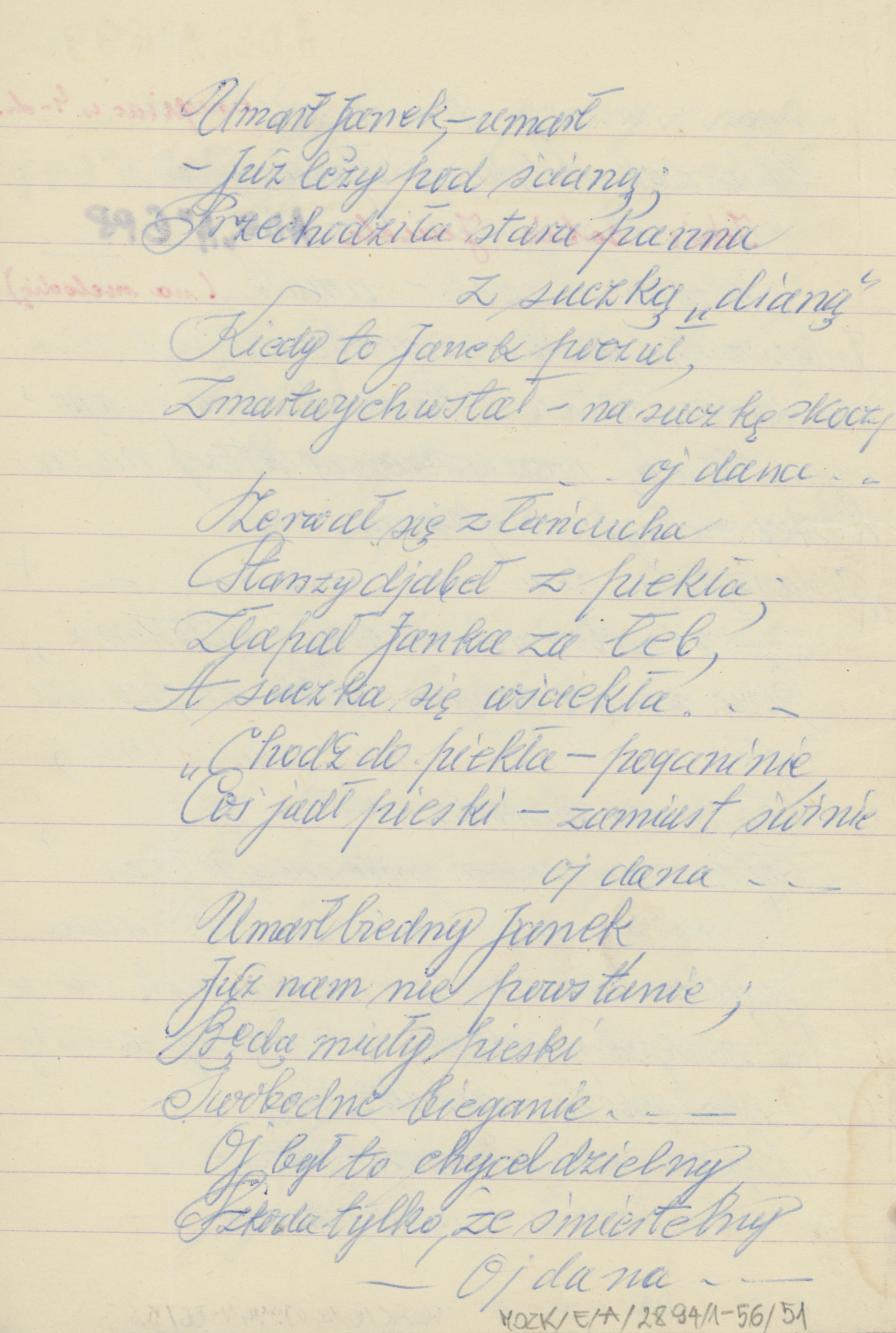 Umarł Janek, – umarł
– Już leży pod ścianą;
Przechodziła stara panna
z suczką „dianą"
Kiedy to Janek poczuł,
Zmartwychwstał – na suczkę skoczy
. . oj dana . . 
Zerwał się z łańcucha
Starszy djabeł z piekła;
Złapał Janka za łeb,
A suczka się wściekła . . –
„Chodź do piekła – poganinie
Coś jadł pieski – zamiast świnie
oj dana . . —
Umarł biedny Janek
Już nam nie powstanie ;
Będą miały pieski
Swobodne bieganie . . —
Oj był to chycel dzielny
Szkoda tylko, że śmiertelny
— Oj dana . . —
MOZK/E/A/2894/1-56/51